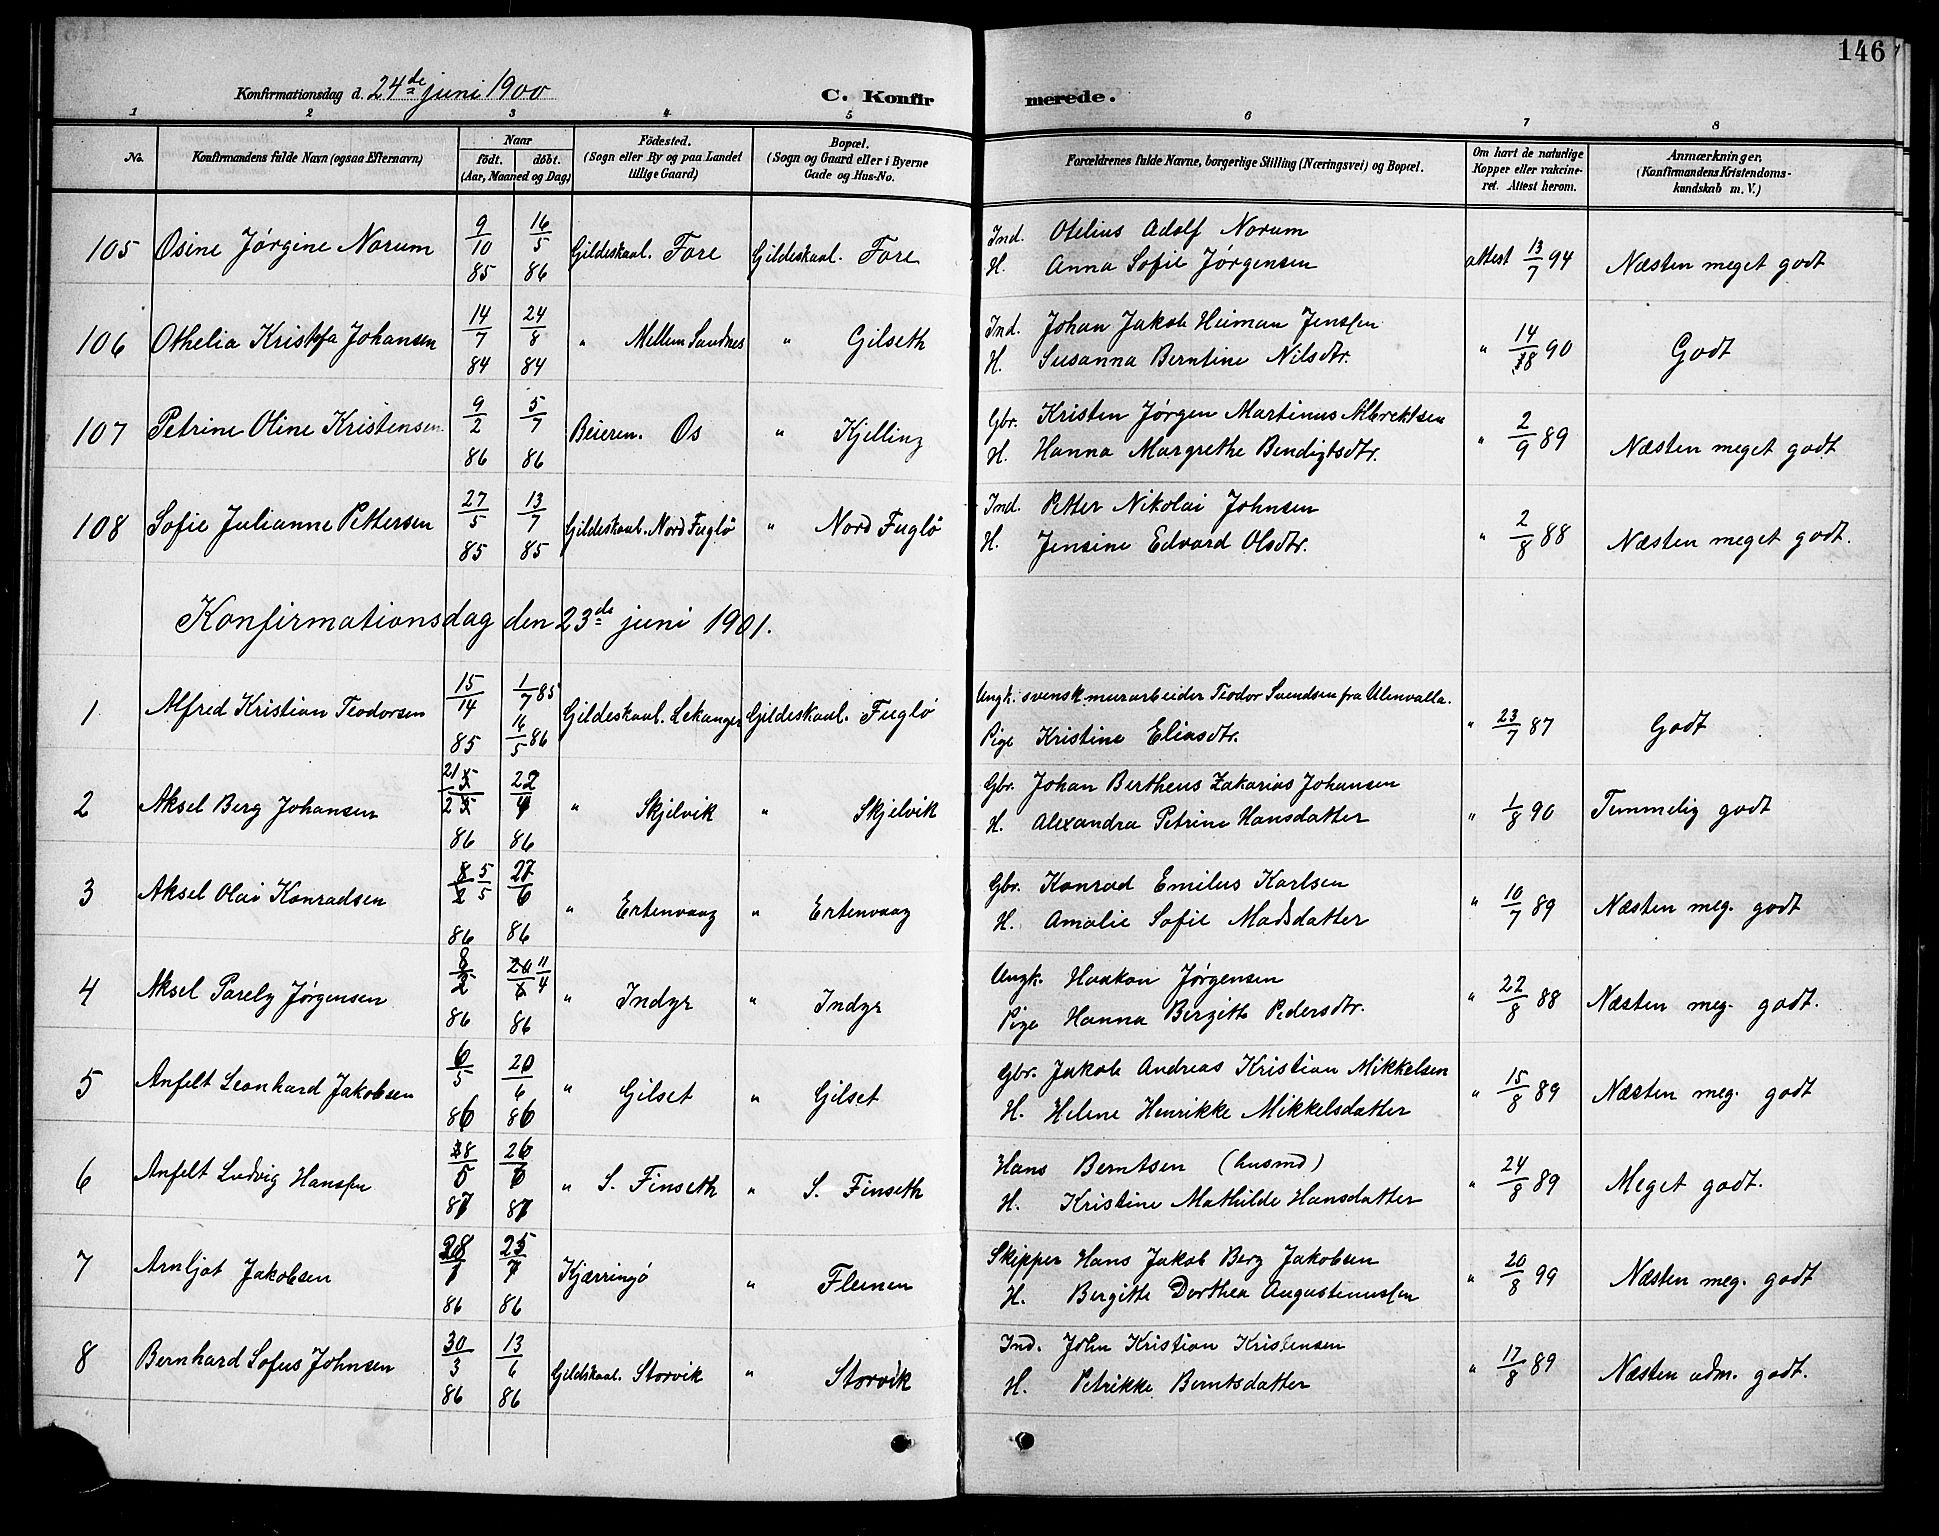 146
Konfirmationsdag d. 24de juni 1900
C. Konfirmerede.
1 2 3 4 5 6 7 8
No.
Konfirmandens fulde Navn (ogsaa Efternavn)
Naar
født. døbt.
(Aar, Maaned og Dag)
Fødested.
(Sogn eller By og paa Landet
tillige Gaard)
Bopæl.
(Sogn og Gaard eller i Byerne
Gade og Hus-No.
Forældrenes fulde Navne, borgerlige Stilling (Næringsvei) og Bopæl.
Om havt de naturlige
Kopper eller vakcine-
ret. Attest herom.
Anmærkninger.
(Konfirmandens Kristendoms-
kundskab m. V.)
105 Osine Jørgine Norum 9/10 85 16/5 86 Gildeskaal. Fore Gildeskaal. Fore
Ind. Otelius Adolf Norum
H. Anna Sofie Jørgensen
attest 13/7 94 Næsten meget godt
106 Othelia Kristofa Johansen 14/7 84 24/8 84 " Mellem Sandnes " Gilseth
Ind. Johan Jakob Heiman Jenssen
H. Susanna Berntine Nilsdtr.
" 14/8 90 Godt
107 Petrine Oline Kristensen 9/2 86 5/7 86 Beieren. Os " Kjelling
Gbr. Kristen Jørgen Martinus Albrektsen
H. Hanna Margrethe Bendigtsdtr.
" 2/9 89 Næsten meget godt
108 Sofie Julianne Pettersen 27/5 85 13/7 85 Gildeskaal. Nord Fuglø " Nord Fuglø
Ind. Petter Nikolai Johnsen
H. Jensine Edvard Olsdtr.
" 2/8 88 Næsten meget godt.
Konfirmationsdag den 23de juni 1901.
1 Alfred Kristian Teodorsen 15/14 85 1/7 85 16/5 86 Gildeskaal. Lekanger Gildeskaal. Fuglø
Ungk. svensk murarbeider Teodor Svendsen fra Ulenvalla.
Pige Kristine Eliasdtr.
" 23/7 87 Godt
2 Aksel Berg Johansen 21/2 86 22/4 86 " Skjelvik " Skjelvik
Gbr. Johan Bertheus Zakarias Johansen
H. Alexandra Petrine Hansdatter
" 1/8 90 Temmelig godt
3 Aksel Olai Konradsen 8/2 5/5 86 27/6 86 " Ertenvaag " Ertenvaag
Gbr. Konrad Emilus Karlsen
H. Amalie Sofie Madsdatter
" 10/7 89 Næsten meg. godt
4 Aksel Parely Jørgensen 8/2 86 20/6 11/4 86 " Indyr " Indyr
Ungk. Haakon Jørgensen
Pige Hanna Bergitte Pedersdtr.
" 22/8 88 Næsten meg. godt.
5 Anfelt Leonhard Jakobsen 6/5 86 20/6 86 " Gilset " Gilset
Gbr. Jakob Andreas Kristian Mikkelsen
H. Helene Henrikke Mikkelsdatter
" 15/8 89 Næsten meg. godt
6 Anfelt Ludvig Hanssen 28/5 26/6 " S. Finseth " S. Finseth
Hans Berntsen (husmd)
H. Kristine Mathilde Hansdatter
" 24/8 89 Meget godt.
7 Arnljot Jakobsen 28/1 86 25/7 86 Kjærringø " Fleinen
Skipper Hans Jakob Berg Jakobsen
H. Bergitte Dorthea Augustenussen
" 20/8 99 Næsten meg. godt
8 Bernhard Sofus Johnsen 30/3 86 13/6 86 Gildskaal. Storvik " Storvik
Ind. John Kristian Kristensen
H. Petrikke Berntsdatter
" 17/8 89 Næsten udm. godt.